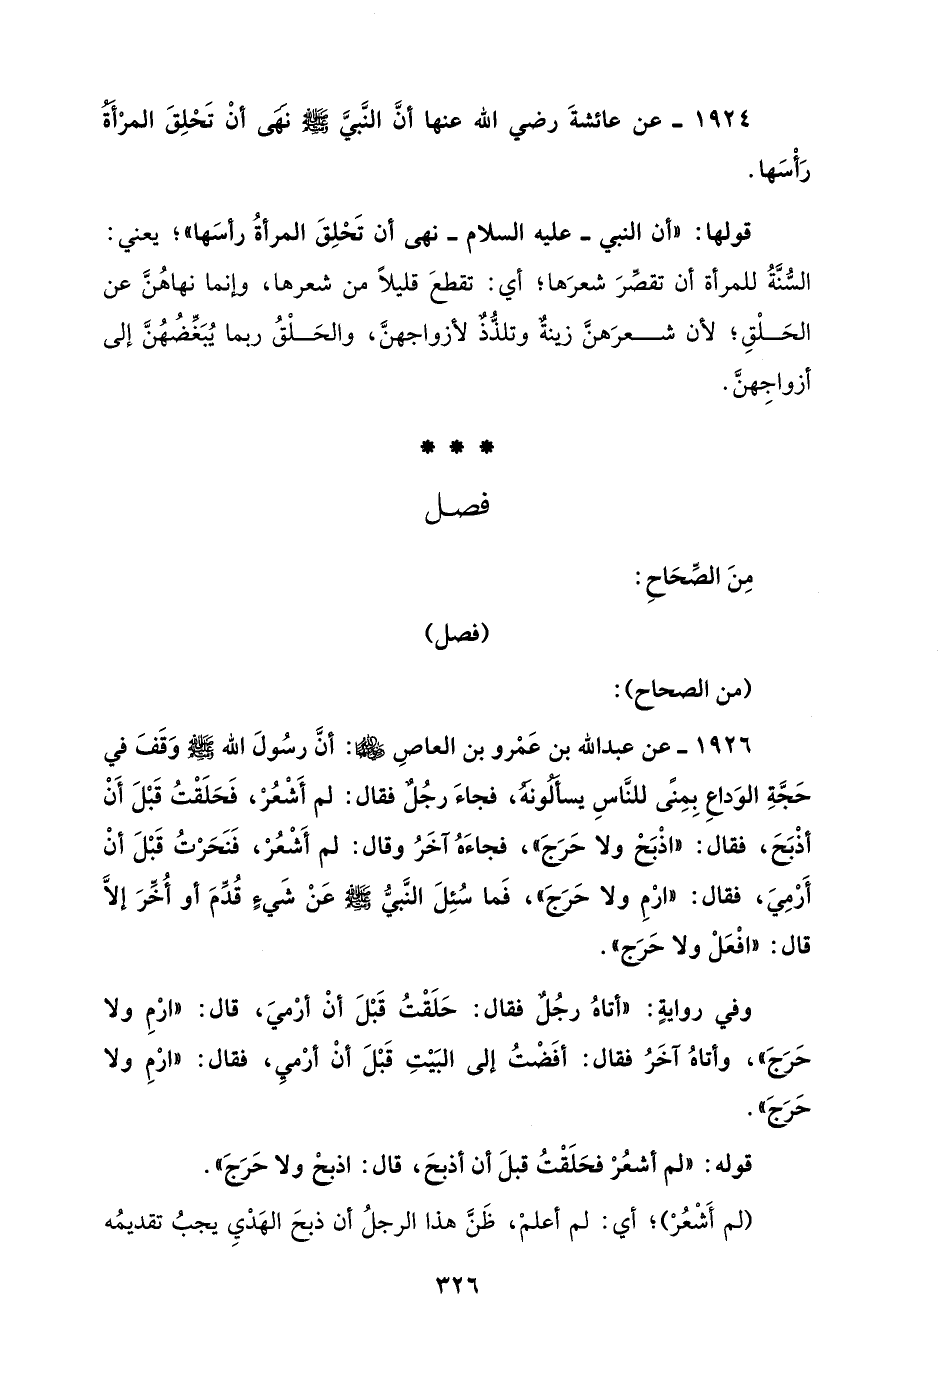 ١٩٢٤ - عن عائشةَ رضي الله عنها أنَّ النَّبيَّ ﷺ نَهَى أنْ تَحْلِقَ المرْأَةُ
رَأْسَها.
قولها: «أن النبي - عليه السلام - نهى أن تَحْلِقَ المرأةُ رأسَها»؛ يعني:
السُّنَّةُ للمرأة أن تقصِّرَ شعرَها؛ أي: تقطعَ قليلاً من شعرها، وإنما نهاهُنَّ عن
الحَلْقِ؛ لأن شعرَهنَّ زينةٌ وتلذُّذٌ لأزواجهنَّ، والحَلْقُ ربما يُبَغِّضُهُنَّ إلى
أزواجِهنَّ.
* * *
فصل
مِنَ الصِّحَاحِ:
(فصل)
(من الصحاح):
١٩٢٦ - عن عبدالله بن عَمْرو بن العاصِ ﵄: أنَّ رسُولَ الله ﷺ وَقَفَ في
حَجَّةِ الوَداعِ بِمِنًى للنَّاسِ يسأَلُونهُ، فجاءَ رجُلٌ فقال: لم أَشْعُرْ، فَحَلَقْتُ قَبْلَ أنْ
أذْبَحَ، فقال: «اذْبَحْ ولا حَرَجَ»، فجاءَهُ آخَرُ وقال: لم أَشْعُرْ، فَنَحَرْتُ قَبْلَ أنْ
أَرْمِيَ، فقال: «ارْمِ ولا حَرَجَ»، فَما سُئِلَ النَّبيُّ ﷺ عَنْ شَيءٍ قُدِّمَ أو أُخِّرَ إلاَّ
قال: «افْعَلْ ولا حَرَج».
وفي روايةٍ: «أتاهُ رجُلٌ فقال: حَلَقْتُ قَبْلَ أنْ أرْميَ، قال: «ارْمِ ولا
حَرَجَ»، وأتاهُ آخَرُ فقال: أفَضْتُ إلى البَيْتِ قَبْلَ أنْ أرْميِ، فقال: «ارْمِ ولا
حَرَجَ».
قوله: «لم أشعُرْ فحَلَقْتُ قبلَ أن أذبحَ، قال: اذبحْ ولا حَرَجَ».
(لم أَشْعُرْ)؛ أي: لم أعلمْ، ظَنَّ هذا الرجلُ أن ذبحَ الهَدْيِ يجبُ تقديمُه
٣٢٦